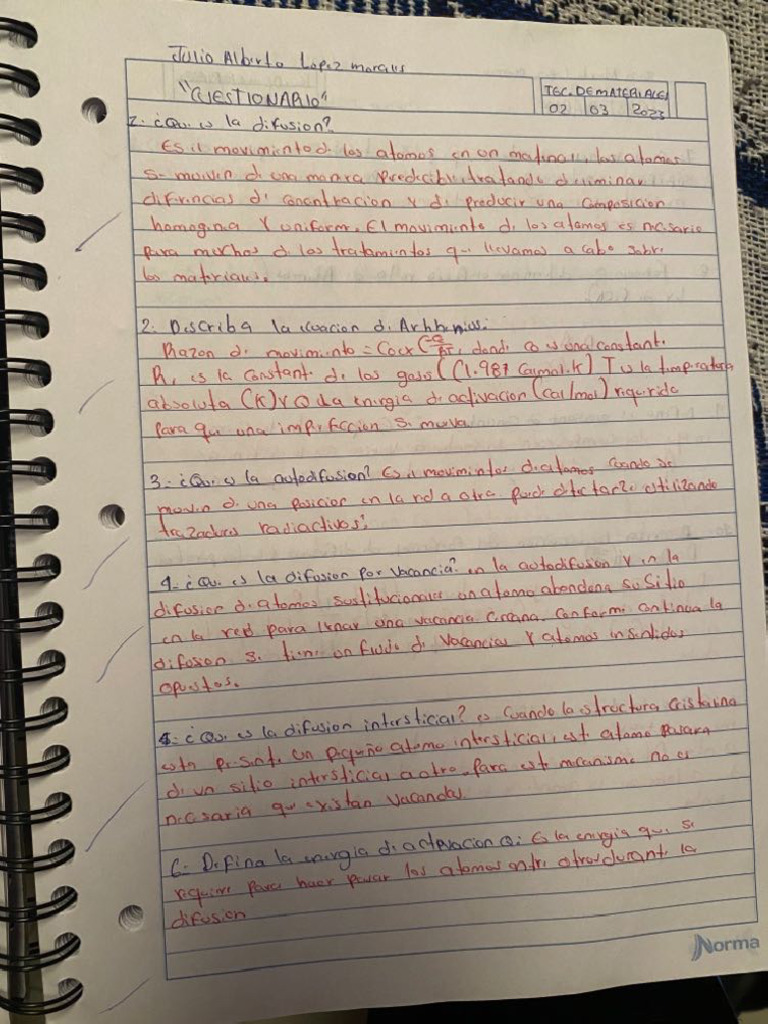 Julio Alberto Lopez morales
"CUESTIONARIO"
TEC. DE MATERIALES
02 03 2023
1.- ¿Que es la difusion?
Es el movimiento de los atomos en un material, los atomos
se mueven de una manera predecible, tratando de eliminar
diferencias de concentracion y de producir una composicion
homogenea y uniforme. El movimiento de los atomos es necesario
para muchos de los tratamientos que llevamos a cabo sobre
los materiales.
2. Describa la ecuacion de Arhhenius:
Razon de movimiento = Coex (-Q/RT, donde Co es una constante.
R, es la constante de los gases ((1.987 Cal/mol.k) T es la temperatura
absoluta (K) y Q la energia de activacion (cal/mol) requerido
para que una imperfeccion se mueva.
3.- ¿Que es la autodifusion? Es el movimientos de atomos cuando se
mueven de una posicion en la red a otra puede detectarse utilizando
trazadores radiactivos.
4.- ¿Que es la difusion por vacancia? en la autodifusion y en la
difusion de atomos sustitucionales un atomo abandona su sitio
en la red para llenar una vacancia cercana. Conforme continua la
difusion se tiene un fluido de vacancias y atomos en sentidos
opuestos.
5.- ¿Que es la difusion intersticial? es cuando la estructura cristalina
esta presente un pequeño atomo intersticial, este atomo pasara
de un sitio intersticial a otro. Para este mecanismo no es
necesaria que existan vacancias
6.- Defina la energia de activacion Q: Es la energia que se
requiere para hacer pasar los atomos entre otros durante la
difusion
Norma